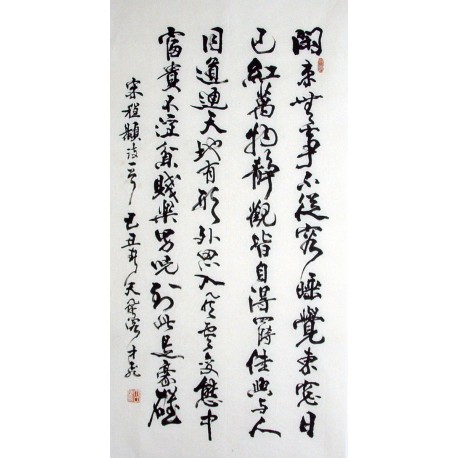 閑來無事不從容睡覺東窗日
已紅萬物靜觀皆自得四時佳興與人
同道通天地有形外思入風雲變態中
富貴不淫貧賤樂男兒到此是豪雄
宋程顥詩一首己丑年天